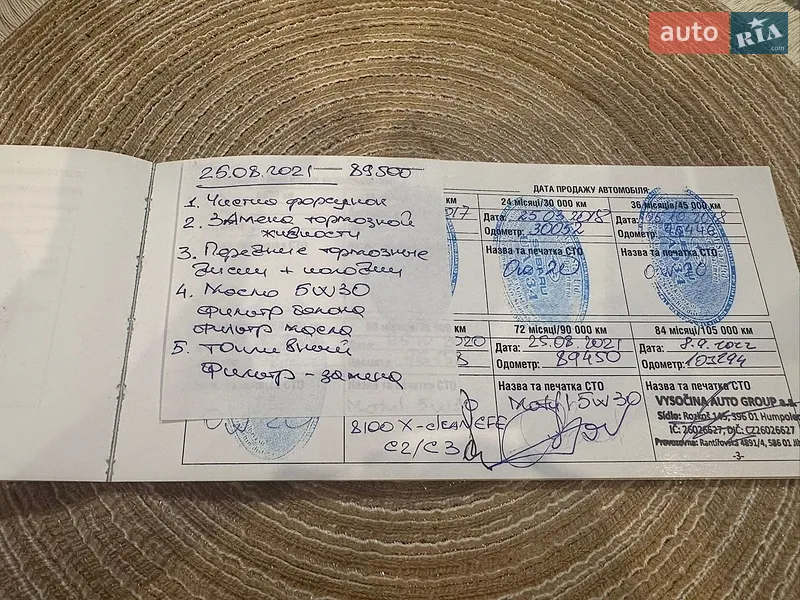 auto RIA.com
25.08.2021 — 89500
1. Чистка форсунок
2. Замена тормозной
жидкости
3. Передние тормозные
диски + колодки
4. Масло 5W30
фильтр салона
фильтр масла
5. Топливный
фильтр - замена
ДАТА ПРОДАЖУ АВТОМОБІЛЯ:
км
017
24 місяці/30 000 км
Дата: 25.03.2018
Одометр: 30052
Назва та печатка СТО
36 місяців/45 000 км
Дата:
Одометр:
Назва та печатка СТО
км
2020
72 місяці/90 000 км
Дата: 25.08.2021
Одометр: 89450
Назва та печатка СТО
Motul 5W30
84 місяці/105 000 км
Дата: 8.9.2022
Одометр: 103294
Назва та печатка СТО
VYSOČINA AUTO GROUP
Sídlo: Rozkoš 145, 396 01 Humpolec
IČ: 26026627, DIČ: CZ26026627
Provozovna: Rantířovská 4891/4, 586 01 Ji
8100 X-clean EFE
C2/C3
-3-